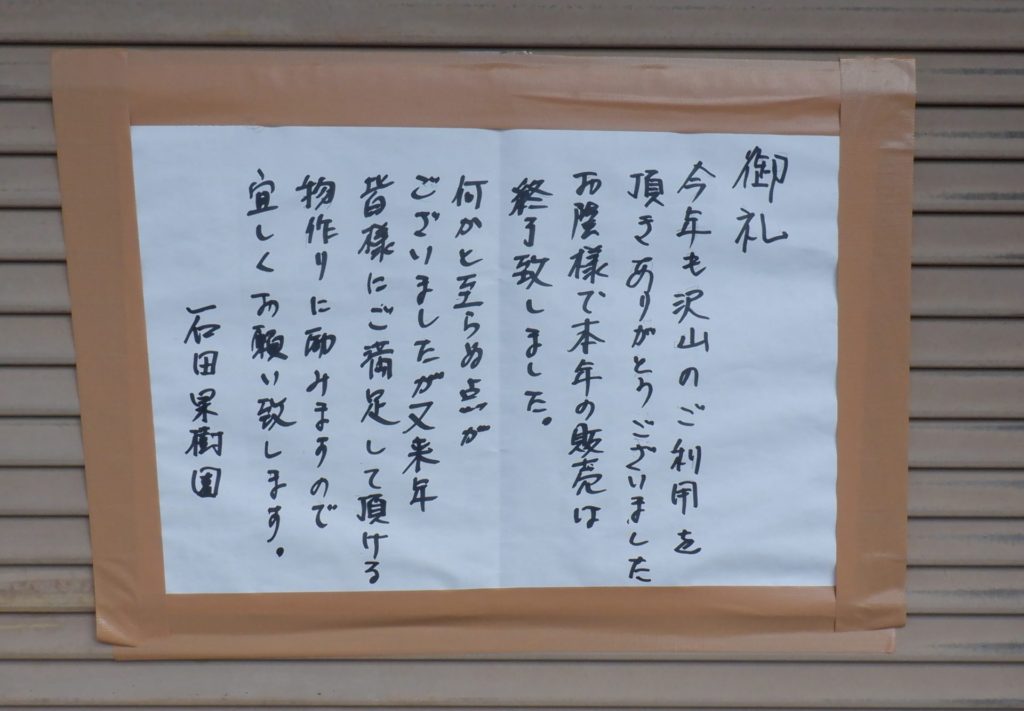 御礼
今年も沢山のご利用を
頂きありがとうございました
お陰様で本年の販売は
終了致しました。
何かと至らぬ点が
ございましたが又来年
皆様にご満足して頂ける
物作りに励みますので
宜しくお願い致します。
石田果樹園